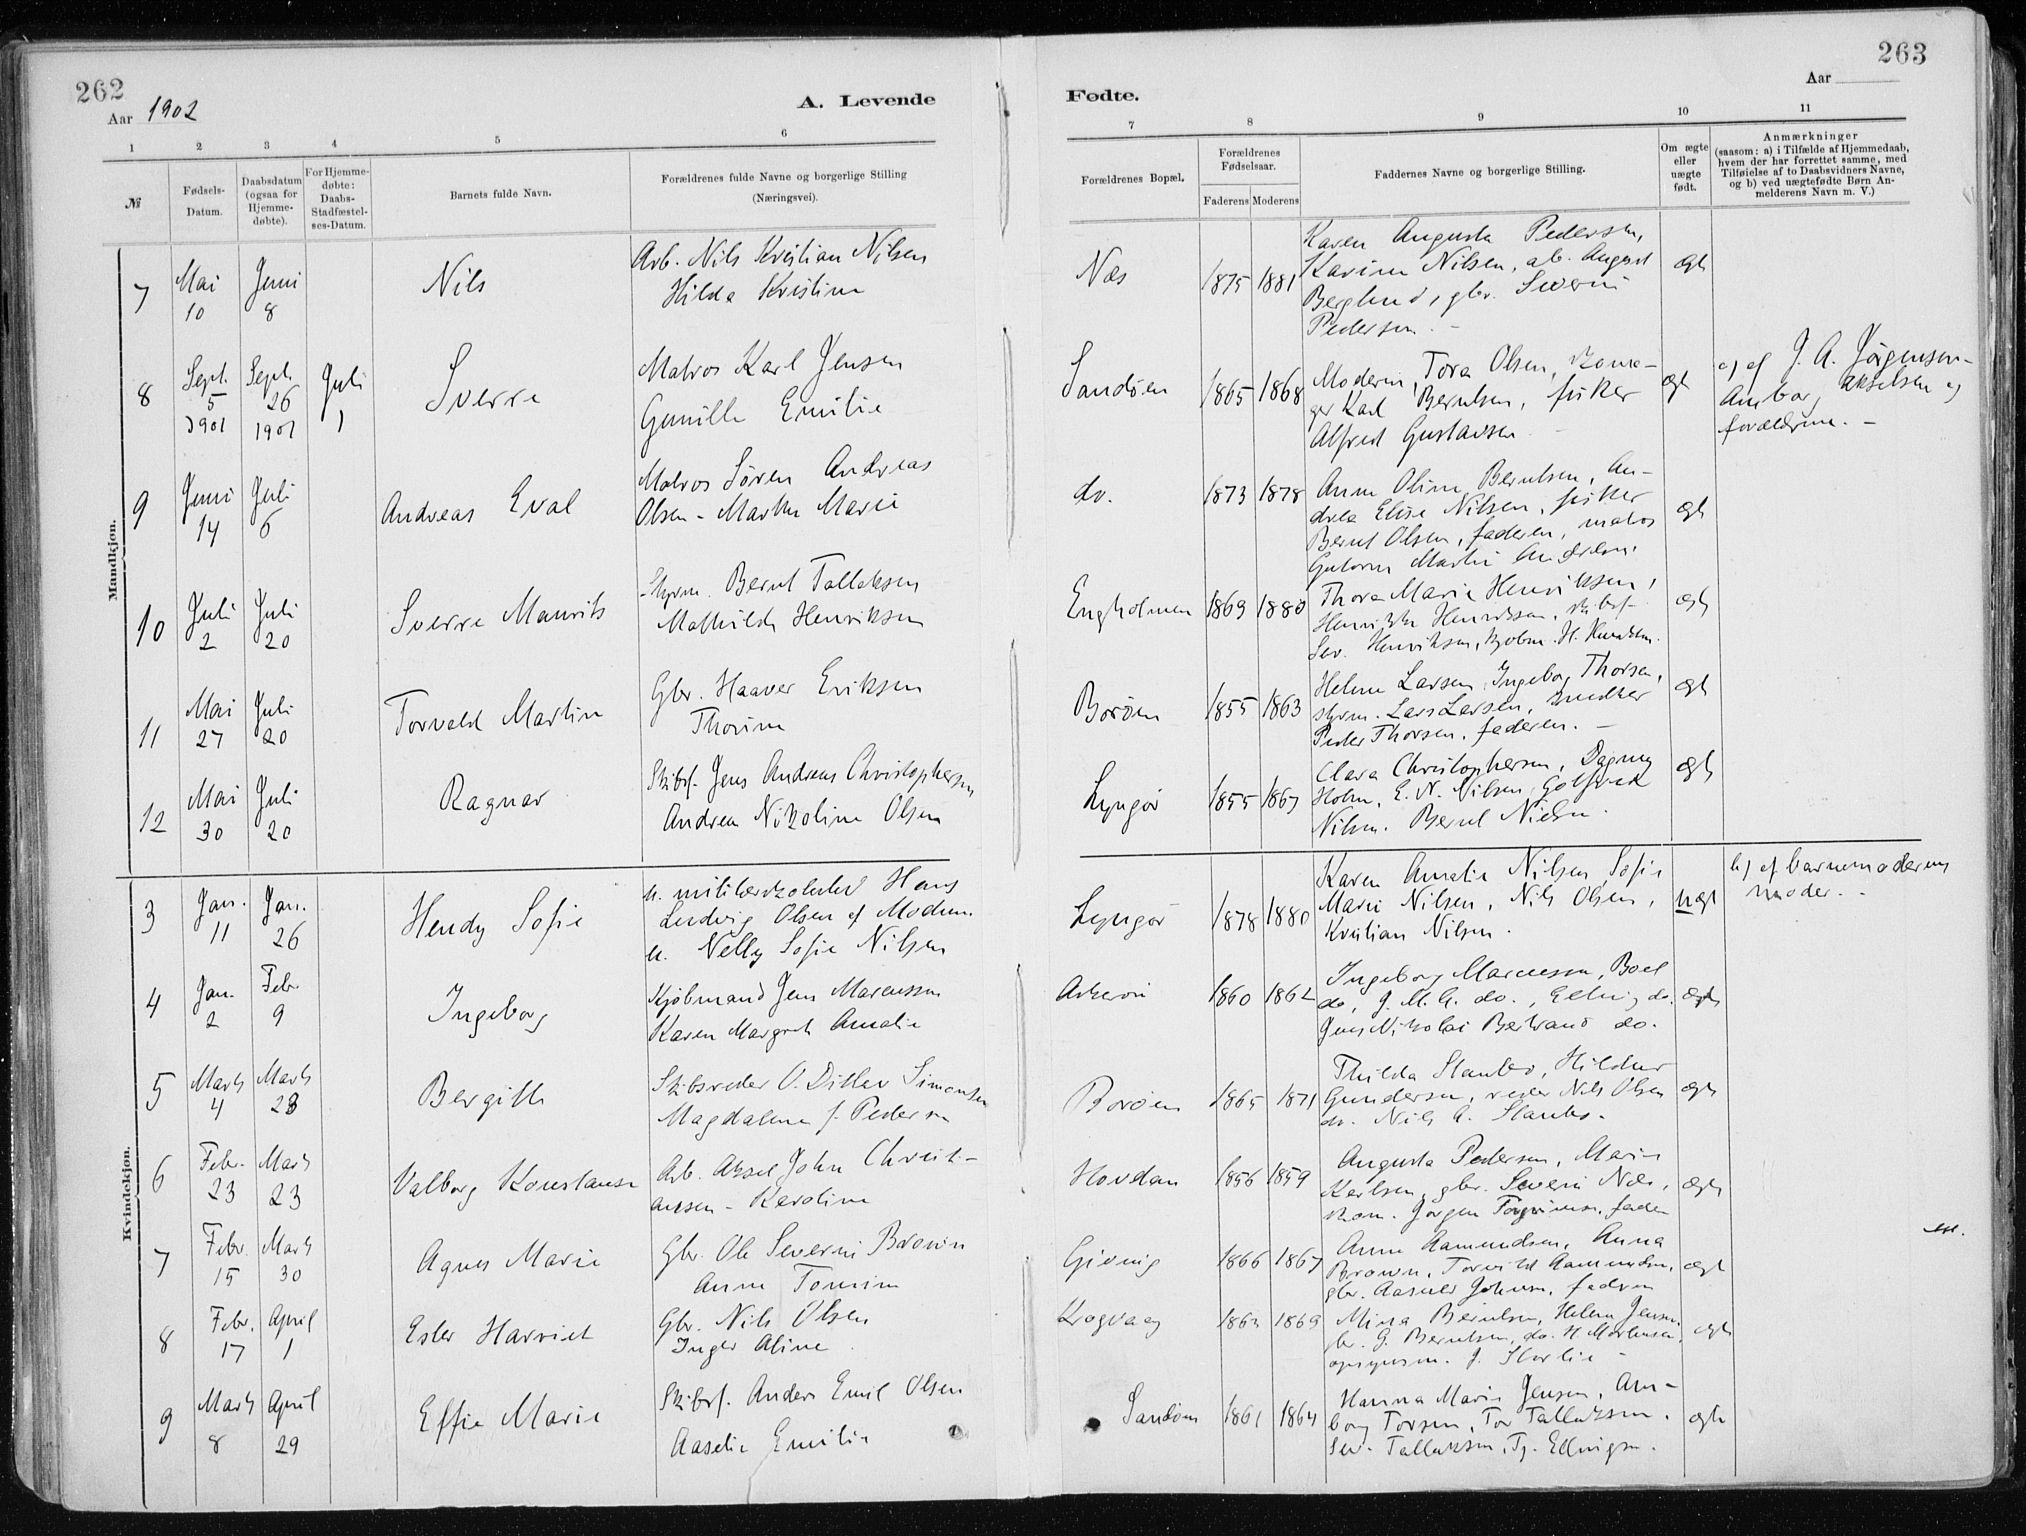 262
Aar 1902
A. Levende
1 2 3 4 5 6
№
Fødsels-
Datum.
Daabsdatum
(ogsaa for
Hjemme-
døbte).
For Hjemme-
døbte:
Daabs-
Stadfæstel-
ses-Datum.
Barnets fulde Navn.
Forældrenes fulde Navne og borgerlige Stilling
(Næringsvei).
Mandkjøn.
7
Mai
10
Juni
8
Nils
Arb. Nils Kristian Nilsen
Hilda Kristine
8
Sept.
5
1901
Septr.
26
1901
Juli
1
Sverre
Matros Karl Jensen
Gunille Emilie
9
Juni
14
Juli
6
Andreas Eval
Matros Søren Andreas
Olsen - Marthe Marie
10
Juli
2
Juli
20
Sverre Maurits
Styrm. Bernt Tallaksen
Mathilde Henriksen
11
Mai
27
Juli
20
Torvald Martin
Gbr. Haaver Eriksen
Thorine
12
Mai
30
Juli
20
Ragnar
Skibsf. Jens Andreas Christophersen
Andrea Nikoline Olsen
Kvindekjøn.
3
Jan.
11
Jan.
26
Hendy Sofie
u. militærarbeider Hans
Ludvig Olsen af Modum
u. Nelly Sofie Nilsen
4
Jan.
2
Febr.
9
Ingeborg
Kjøbmand Jens Marcussen
Karen Margret Amalie
5
Marts
4
Marts
23
Bergith
Skibsreder O. Ditlev Simonsen
Magdalene f. Pedersen
6
Febr.
23
Marts
23
Valborg Konstanse
Arb. Aksel John Christi-
ansen - Karoline
7
Febr.
15
Marts
30
Agnes Marie
Gbr. Ole Severin Brown
Anne Tomine
8
Febr.
17
April
1
Ester Harriet
Gbr. Nils Olsen
Inger Aline
9
Marts
8
April
29
Effie Marie
Skibsf. Anders Emil Olsen
Aaselie Emilie
263
Aar
Fødte.
7 8 9 10 11
Forældrenes Bopæl.
Forældrenes
Fødselsaar.
Faderens Moderens
Faddernes Navne og borgerlige Stilling.
Om ægte
eller
uægte
født.
Anmærkninger
(saasom: a) i Tilfælde af Hjemmedaab,
hvem der har forrettet samme, med
Tilføielse af to Daabsvidners Navne,
og b) ved uægtefødte Børn An-
melderens Navn m. V.)
Næs
1875 1881
Karen Augusta Pedersen,
Karine Nilsen, arb. August
Berglund, gbr. Severin
Pedersen. -
ægte
Sandøen
1865 1868
Moderen, Tora Olsen,
ger Karl Berntsen, fisker
Alfred Gustavsen -
ægte
a) af J. A. Jørgensen -
Amborg Akselsen og
forældrene. -
do.
1873 1878
Anne Oline Berntsen, An-
drea Elise Nilsen, fisker
Bernt Olsen, faderen, matros
Gutorm Martin Andersen.
ægte
Engholmen
1869 1880
Thora Marie Henriksen,
Henrikke Henriksen, skibsf.
Sev. Henriksen, kjøbm. H. Knudsen.
ægte
Borøen
1855 1863
Helene Larsen, Ingeborg Thorsen,
styrm. Lars Larsen, snedker
Peder Thorsen, faderen. -
ægte
Lyngør
1855 1867
Clara Christophersen, Dagny
Holm, E. N. Nilsen, Gotfred
Nilsen. Bernt Nielsen.
ægte
Lyngør
1878 1880
Karen Amalie Nilsen Sofie
Marie Nilsen, Nils Olsen,
Kristian Nilsen.
uægte
b) af barnemoderens
moder. -
Askerøi
1860 1862
Ingeborg Marcussen, Boel
do, J. M. G. do., Elling do.
Jens Nikolai Bertrand do.
ægte
Borøen
1865 1871
Thilda Stanbo, Hildur
Gundersen, reder Nils Olsen
do. Nils A. Stanbo.
ægte
Hovdan
1856 1859
Augusta Pedersen, Marie
Karlsen, gbr. Severin Næs,
skom. Jørgen Torgrimsen, faderen
ægte
Gjeving
1866 1867
Anne Aamundsen, Anna
Brown, Torvild Aamundsen,
gbr. Aasuld Johnsen, faderen
ægte
Krogvaag
1862 1869
Mina Berntsen, Helene Jensen,
gbr. G. Berntsen, do. H. Mortensen
opsynsm. J. Storlie -
ægte
Sandøen
1861 1864
Hanna Marie Jensen, Am-
borg Torsen, Tor Tallaksen.
Sev. Tallaksen, Tj. Ellingsen.
ægte